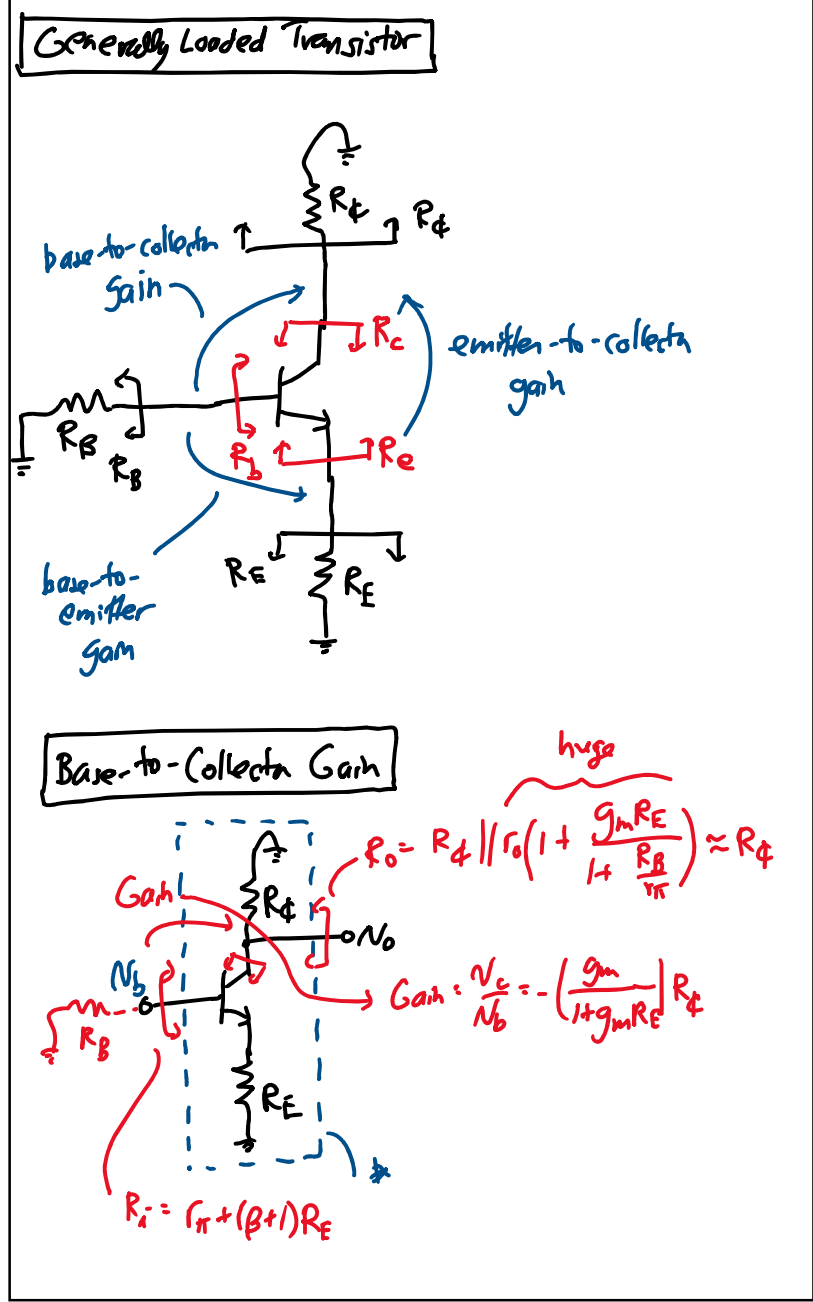 Generally Loaded Transistor
R₵
R₵
base-to-collector
gain
Rc
emitter-to-collector
gain
RB
RB
Rb
Re
RE
RE
base-to-
emitter
gain
Base-to-Collector Gain
huge
Ro = R₵ || ro(1 + gmRE / (1 + RB/rπ)) ≈ R₵
Gain
R₵
vo
vb
Gain = vc/vb = -(gm / (1+gmRE)) R₵
RB
RE
*
Ri = rπ + (β+1)RE